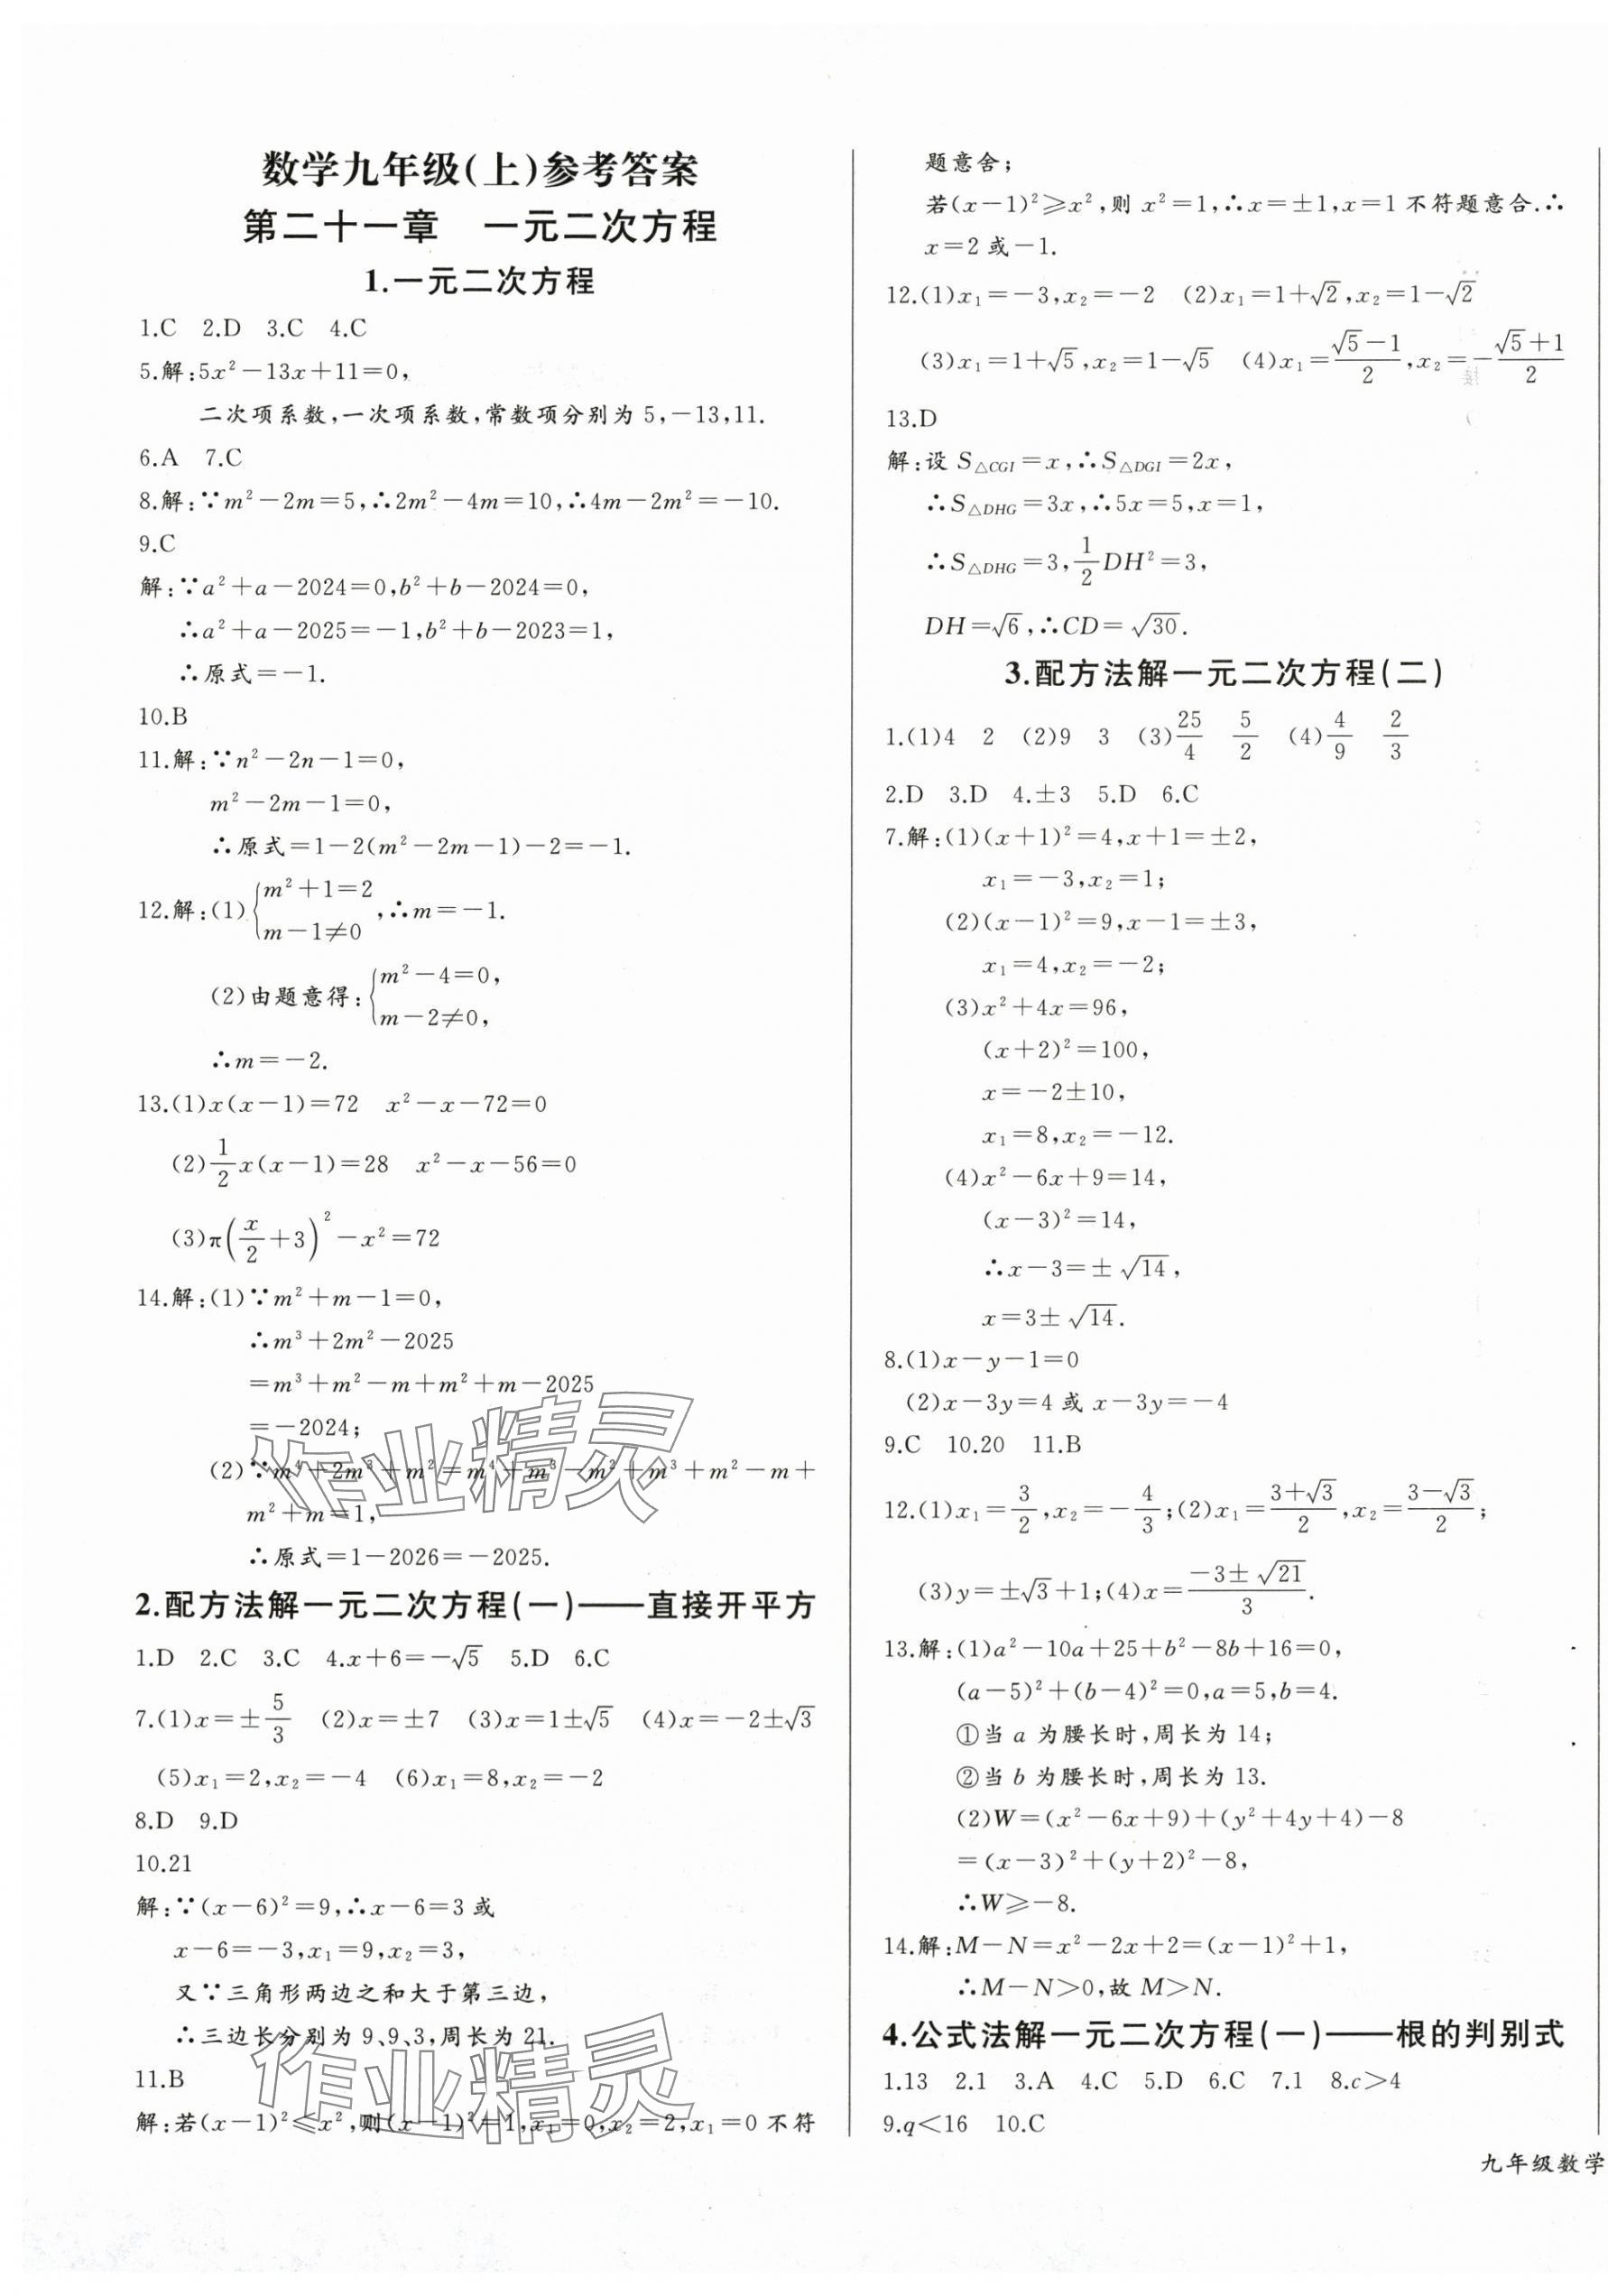 数学九年级(上)参考答案
第二十一章　一元二次方程
1.一元二次方程
1.C　2.D　3.C　4.C
5.解:5x²－13x＋11＝0,
二次项系数,一次项系数,常数项分别为 5,－13,11.
6.A　7.C
8.解:∵m²－2m＝5,∴2m²－4m＝10,∴4m－2m²＝－10.
9.C
解:∵a²＋a－2024＝0,b²＋b－2024＝0,
∴a²＋a－2025＝－1,b²＋b－2023＝1,
∴原式＝－1.
10.B
11.解:∵n²－2n－1＝0,
m²－2m－1＝0,
∴原式＝1－2(m²－2m－1)－2＝－1.
12.解:(1){m²＋1＝2 m－1≠0,∴m＝－1.
(2)由题意得:{m²－4＝0, m－2≠0,
∴m＝－2.
13.(1)x(x－1)＝72　x²－x－72＝0
(2)1/2 x(x－1)＝28　x²－x－56＝0
(3)π(x/2＋3)²－x²＝72
14.解:(1)∵m²＋m－1＝0,
∴m³＋2m²－2025
＝m³＋m²－m＋m²＋m－2025
＝－2024;
(2)∵m⁴＋2m³＋m²＝m⁴＋m³－m²＋m³＋m²－m＋
m²＋m＝1,
∴原式＝1－2026＝－2025.
2.配方法解一元二次方程(一)——直接开平方
1.D　2.C　3.C　4.x＋6＝－√5　5.D　6.C
7.(1)x＝±5/3　(2)x＝±7　(3)x＝1±√5　(4)x＝－2±√3
(5)x₁＝2,x₂＝－4　(6)x₁＝8,x₂＝－2
8.D　9.D
10.21
解:∵(x－6)²＝9,∴x－6＝3 或
x－6＝－3,x₁＝9,x₂＝3,
又∵三角形两边之和大于第三边,
∴三边长分别为 9、9、3,周长为 21.
11.B
解:若(x－1)²≤x²,则(x－1)²＝1,x₁＝0,x₂＝2,x₁＝0 不符
题意舍;
若(x－1)²≥x²,则 x²＝1,∴x＝±1,x＝1 不符题意合.∴
x＝2 或－1.
12.(1)x₁＝－3,x₂＝－2　(2)x₁＝1＋√2,x₂＝1－√2
(3)x₁＝1＋√5,x₂＝1－√5　(4)x₁＝(√5－1)/2,x₂＝－(√5＋1)/2
13.D
解:设 S△CGI＝x,∴S△DGI＝2x,
∴S△DHG＝3x,∴5x＝5,x＝1,
∴S△DHG＝3,1/2 DH²＝3,
DH＝√6,∴CD＝√30.
3.配方法解一元二次方程(二)
1.(1)4　2　(2)9　3　(3)25/4　5/2　(4)4/9　2/3
2.D　3.D　4.±3　5.D　6.C
7.解:(1)(x＋1)²＝4,x＋1＝±2,
x₁＝－3,x₂＝1;
(2)(x－1)²＝9,x－1＝±3,
x₁＝4,x₂＝－2;
(3)x²＋4x＝96,
(x＋2)²＝100,
x＝－2±10,
x₁＝8,x₂＝－12.
(4)x²－6x＋9＝14,
(x－3)²＝14,
∴x－3＝±√14,
x＝3±√14.
8.(1)x－y－1＝0
(2)x－3y＝4 或 x－3y＝－4
9.C　10.20　11.B
12.(1)x₁＝3/2,x₂＝－4/3;(2)x₁＝(3＋√3)/2,x₂＝(3－√3)/2;
(3)y＝±√3＋1;(4)x＝(－3±√21)/3.
13.解:(1)a²－10a＋25＋b²－8b＋16＝0,
(a－5)²＋(b－4)²＝0,a＝5,b＝4.
①当 a 为腰长时,周长为 14;
②当 b 为腰长时,周长为 13.
(2)W＝(x²－6x＋9)＋(y²＋4y＋4)－8
＝(x－3)²＋(y＋2)²－8,
∴W≥－8.
14.解:M－N＝x²－2x＋2＝(x－1)²＋1,
∴M－N＞0,故 M＞N.
4.公式法解一元二次方程(一)——根的判别式
1.13　2.1　3.A　4.C　5.D　6.C　7.1　8.c＞4
9.q＜16　10.C
九年级数学
作业精灵
作业精灵